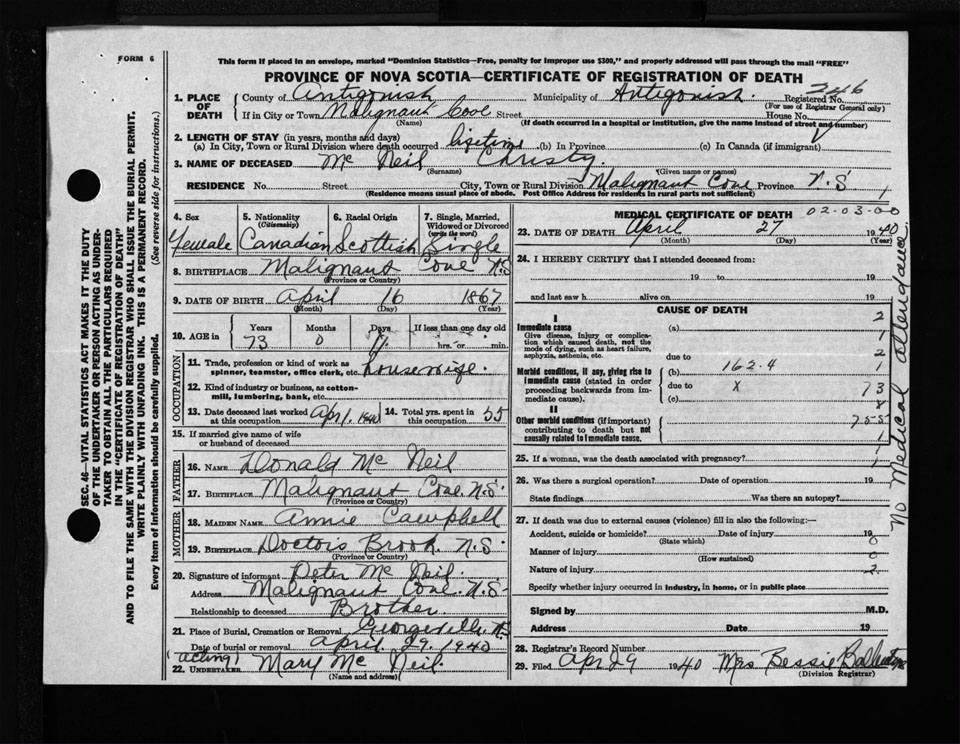 FORM 6
This form if placed in an envelope, marked "Dominion Statistics—Free, penalty for improper use $300," and properly addressed will pass through the mail "FREE"
PROVINCE OF NOVA SCOTIA—CERTIFICATE OF REGISTRATION OF DEATH
246
1. PLACE OF DEATH County of Antigonish Municipality of Antigonish. Registered No.
(For use of Registrar General only)
If in City or Town Malignant Cove Street House No.
(Name) (If death occurred in a hospital or institution, give the name instead of street and number)
2. LENGTH OF STAY (in years, months and days)
(a) In City, Town or Rural Division where death occurred lifetime (b) In Province (c) In Canada (if immigrant)
3. NAME OF DECEASED Mc Neil Christy.
(Surname) (Given name or names)
RESIDENCE No. Street City, Town or Rural Division Malignant Cove Province N.S 1
(Residence means usual place of abode. Post Office Address for residents in rural parts not sufficient)
4. Sex 5. Nationality (Citizenship) 6. Racial Origin 7. Single, Married, Widowed or Divorced (write the word)
Female Canadian Scottish Single
8. BIRTHPLACE Malignant Cove N.S
(Province or Country)
9. DATE OF BIRTH April 16 1867
(Month) (Day) (Year)
10. AGE in Years Months Days If less than one day old
73 0 11 hrs. or min.
OCCUPATION
11. Trade, profession or kind of work as spinner, teamster, office clerk, etc. housewife.
12. Kind of industry or business, as cotton-mill, lumbering, bank, etc.
13. Date deceased last worked at this occupation Apr, 1940 14. Total yrs. spent in this occupation 55
15. If married give name of wife or husband of deceased
FATHER
16. NAME Donald Mc Neil
17. BIRTHPLACE Malignant Cove N.S.
(Province or Country)
MOTHER
18. MAIDEN NAME Annie Campbell
19. BIRTHPLACE Doctors Brook. N.S.
(Province or Country)
20. Signature of informant Peter Mc Neil.
Address Malignant Cove. N.S.
Relationship to deceased Brother.
21. Place of Burial, Cremation or Removal Georgeville, N.S
Date of burial or removal April 29. 1940
(acting)
22. UNDERTAKER Mary Mc Neil.
(Name and address)
MEDICAL CERTIFICATE OF DEATH 02-03-00
23. DATE OF DEATH April 27 1940
(Month) (Day) (Year)
24. I HEREBY CERTIFY that I attended deceased from:
19 to 19
and last saw h alive on 19
CAUSE OF DEATH
I
Immediate cause (a)
Give disease, injury or complication which caused death, not the mode of dying, such as heart failure, asphyxia, asthenia, etc.
due to
Morbid conditions, if any, giving rise to immediate cause (stated in order proceeding backwards from immediate cause).
(b) 162.4
due to X
(c)
II
Other morbid conditions (if important) contributing to death but not causally related to immediate cause.
2
1
2
1
73
8
755
1
1
25. If a woman, was the death associated with pregnancy?
26. Was there a surgical operation? Date of operation 19
State findings Was there an autopsy?
27. If death was due to external causes (violence) fill in also the following:—
Accident, suicide or homicide? Date of injury 19
(State which) 0
Manner of injury 0
(How sustained)
Nature of injury 2
Specify whether injury occurred in industry, in home, or in public place
Signed by M.D.
Address Date 19
28. Registrar's Record Number
29. Filed Apr 29 1940 Mrs Bessie
(Division Registrar)
No Medical attendance
SEC. 46—VITAL STATISTICS ACT MAKES IT THE DUTY
OF THE UNDERTAKER OR PERSON ACTING AS UNDER-
TAKER TO OBTAIN ALL THE PARTICULARS REQUIRED
IN THE "CERTIFICATE OF REGISTRATION OF DEATH"
AND TO FILE THE SAME WITH THE DIVISION REGISTRAR WHO SHALL ISSUE THE BURIAL PERMIT.
WRITE PLAINLY WITH UNFADING INK. THIS IS A PERMANENT RECORD.
Every item of information should be carefully supplied. (See reverse side for instructions.)